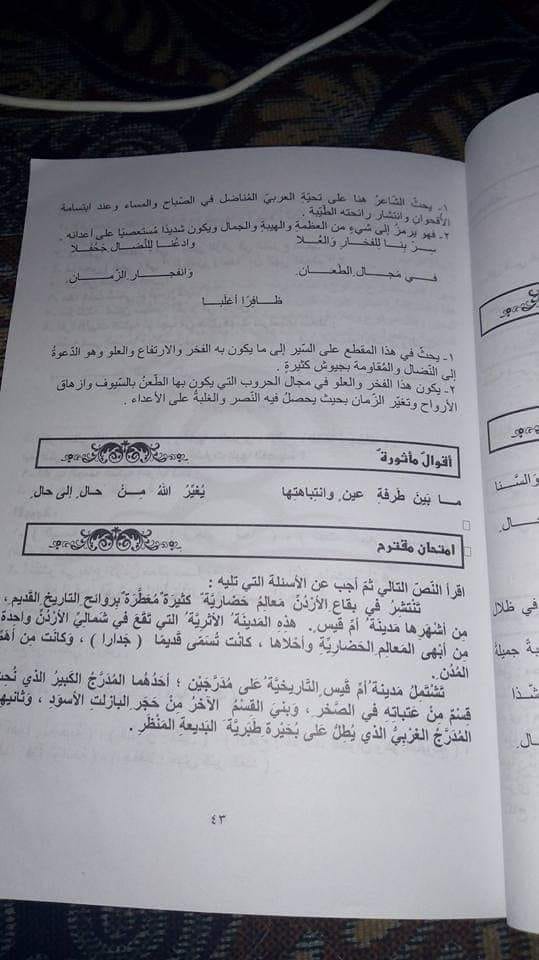 ١- يحثّ الشّاعرُ هنا على تحيّةِ العربيّ المُناضل في الصّباح والمساء وعند ابتسامة
الأقحوان وانتشار رائحته الطّيّبة .
٢- فهو يرمزُ إلى شيءٍ من العظمةِ والهيبةِ والجمال ويكون شديدًا مستعصيًا على أعدائه .
سِرْ بنا لِلفخارِ وَالعُلا وادعُنا للنّضالِ جَحْفلا
في مَجالِ الطّعانِ وَانفجارِ الزّمانِ
ظافِرًا أغلبا
١- يحثّ في هذا المقطع على السّير إلى ما يكون به الفخر والارتفاع والعلو وهو الدّعوة
إلى النّضال والمُقاومة بجيوش كثيرةٍ .
٢- يكون هذا الفخر والعلو في مجال الحروب التي يكون بها الطّعنُ بالسّيوف وازهاق
الأرواح وتغيّر الزّمان بحيث يحصلُ فيه النّصر والغلبةُ على الأعداء .
أقوالٌ مأثورةٌ
ما بَينَ طرفةِ عين وانتباهتِها يُغيِّرُ اللهُ مِنْ حالٍ إلى حالِ
امتحان مقترح
اقرأ النّصّ التالي ثمّ أجب عن الأسئلة التي تليه :
تَنْتَشِرُ في بِقاعِ الأرْدُنّ مَعالِمُ حَضاريّةٌ كثيرَةٌ مُعَطّرَةٌ برَوائِح التاريخ القديم ،
من أشهَرها مَدينَةُ أمّ قيس. هذِهِ المَدينَةُ الأثريّةُ التي تقَعُ في شَماليّ الأردُنّ واحدة
من أبْهى المَعالِم الحَضاريّةِ وأحْلاها ، كانَتْ تُسَمّى قديمًا ( جَدارا ) ، وَكانَت مِن
المُدُن.
تَشْتَمِلُ مَدينَةُ أمّ قيس التاريخيّةُ على مُدَرّجَيْنِ ؛ أحَدُهُما المُدرّجُ الكبيرُ الذي
قِسْمٌ مِنْ عَتباتِهِ في الصّخْر ، وَبنيَ القِسْمُ الآخَرُ مِنْ حَجَر البازلتِ الأسوَدِ ،
المُدَرّجُ الغَرْبيُّ الذي يُطِلُّ على بُحَيْرَةِ طبَريّةَ البَديعةِ المَنْظر .
٤٣